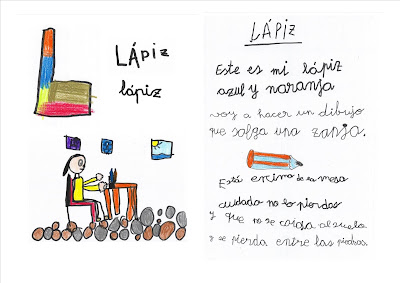 LÁPiZ
lápiz
LÁPiZ
Este es mi lápiz
azul y naranja
voy a hacer un dibujo
que salga una zanja.
Está encima de la mesa
cuidado no lo pierdas
y que no se caiga al suelo
y se pierda entre las piedras.